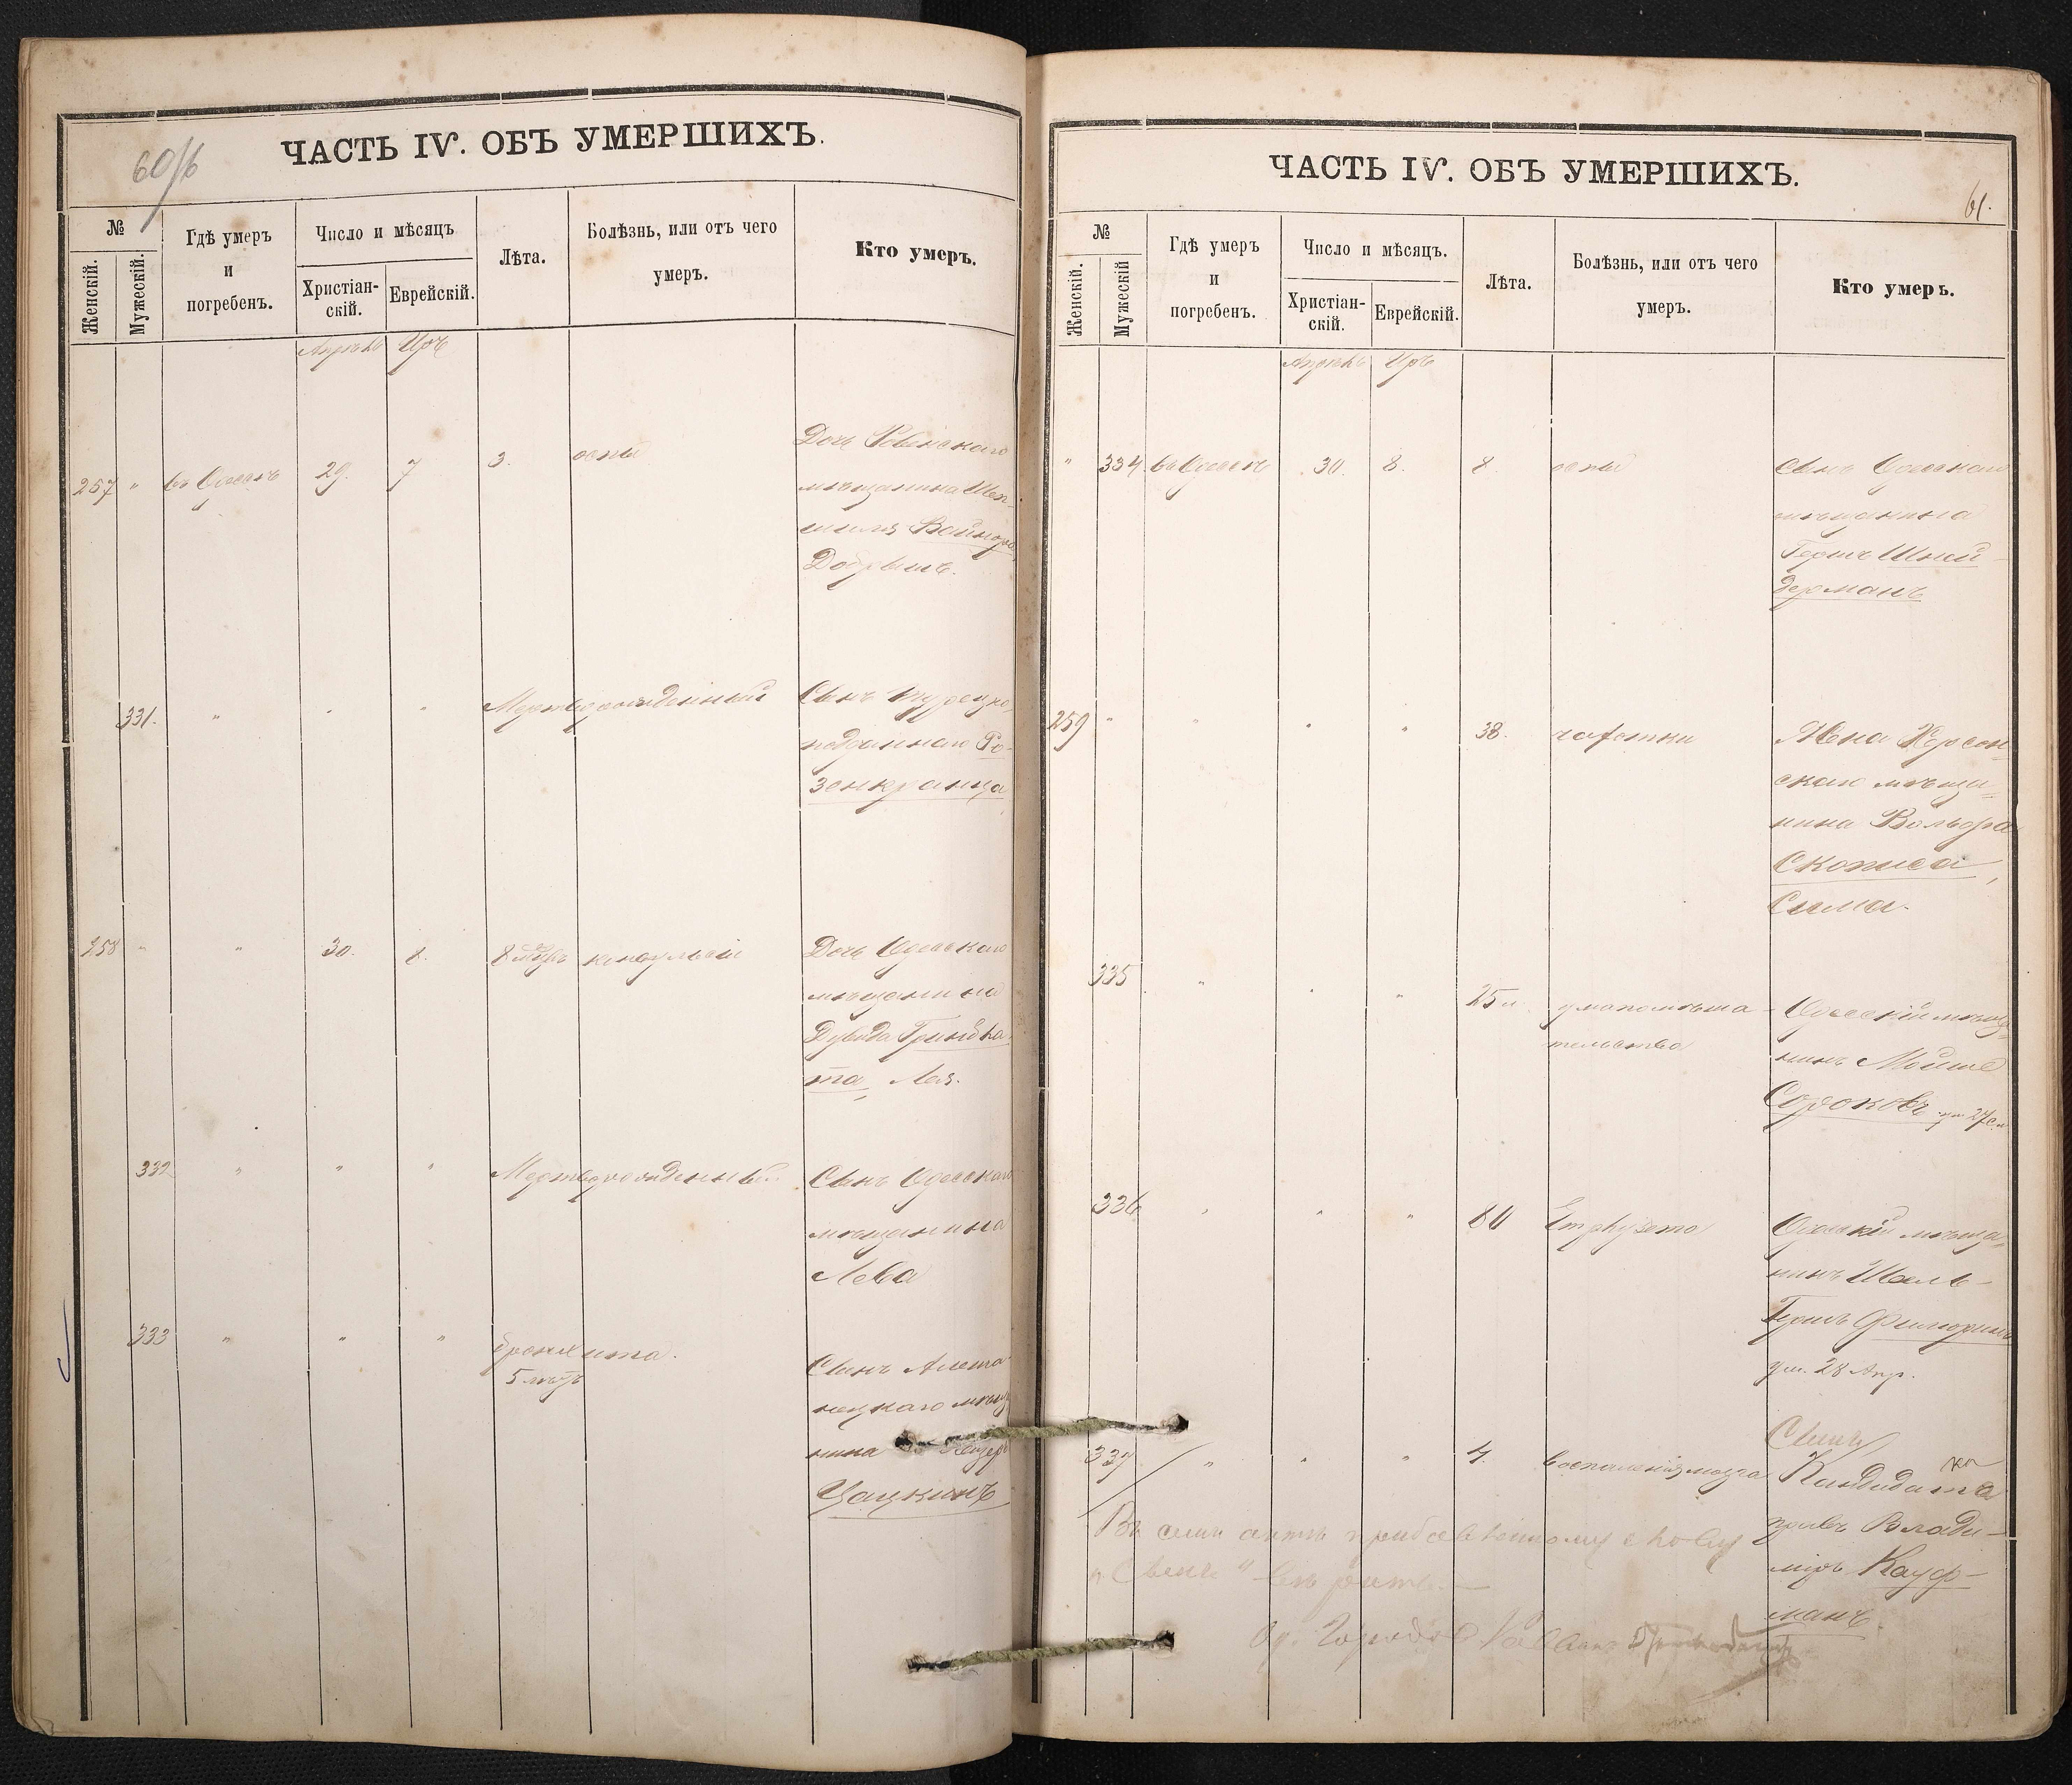 60/б
ЧАСТЬ IV. ОБЪ УМЕРШИХЪ.
№
Женскій.
Мужескій.
Гдѣ умеръ
и
погребенъ.
Число и мѣсяцъ
Христіан-
скій.
Еврейскій.
Лѣта.
Болѣзнь, или отъ чего
умеръ.
Кто умеръ.
Апрѣль Иръ
257 " въ Одессѣ 29. 7 3. оспы
Дочь Ровенскаго
мѣщанина
Добрышъ.
331. " " " Мертворожденный
Сынъ турецко
подданнаго Ро-
зенкранца
258 " " 30. 8. 8 мѣс. конвульсіи
Дочь Одесскаго
мѣщанина
Дувида Гринбла-
та, Лея.
332 " " " Мертворожденный.
Сынъ Одесскаго
мѣщанина
Лева
333 " " " бронхита.
5 мѣс.
Сынъ
мѣщ
нина
Цацкинъ
ЧАСТЬ IV. ОБЪ УМЕРШИХЪ.
61.
№
Женскій.
Мужескій
Гдѣ умеръ
и
погребенъ.
Число и мѣсяцъ.
Христіан-
скій.
Еврейскій.
Лѣта.
Болѣзнь, или отъ чего
умеръ.
Кто умеръ.
Апрѣль Иръ
" 334 въ Одессѣ 30. 8. 8. оспы
Сынъ Одесскаго
мѣщанина
Гершъ Шней-
дерманъ
259 " " " " 38. чахотки
Жена Херсон=
скаго мѣща=
нина Вольфа
Скописа,
Сима.
335 " " " 25 л. умапомѣша-
тельства
Одесскій мѣща
нинъ Мойше
Сороковъ
336 " " " 80 Emphysema
Одесскій мѣща=
нинъ Шель-
Герцъ
ум. 28 Апр.
337 " " " 4. воспаленія мозга
Сынъ
Кандидата
правъ Влади-
міръ Кауф-
манъ.
Въ семъ актѣ прибавленному слову
"Сынъ" вѣрить.—
Од. Городов. Раввинъ